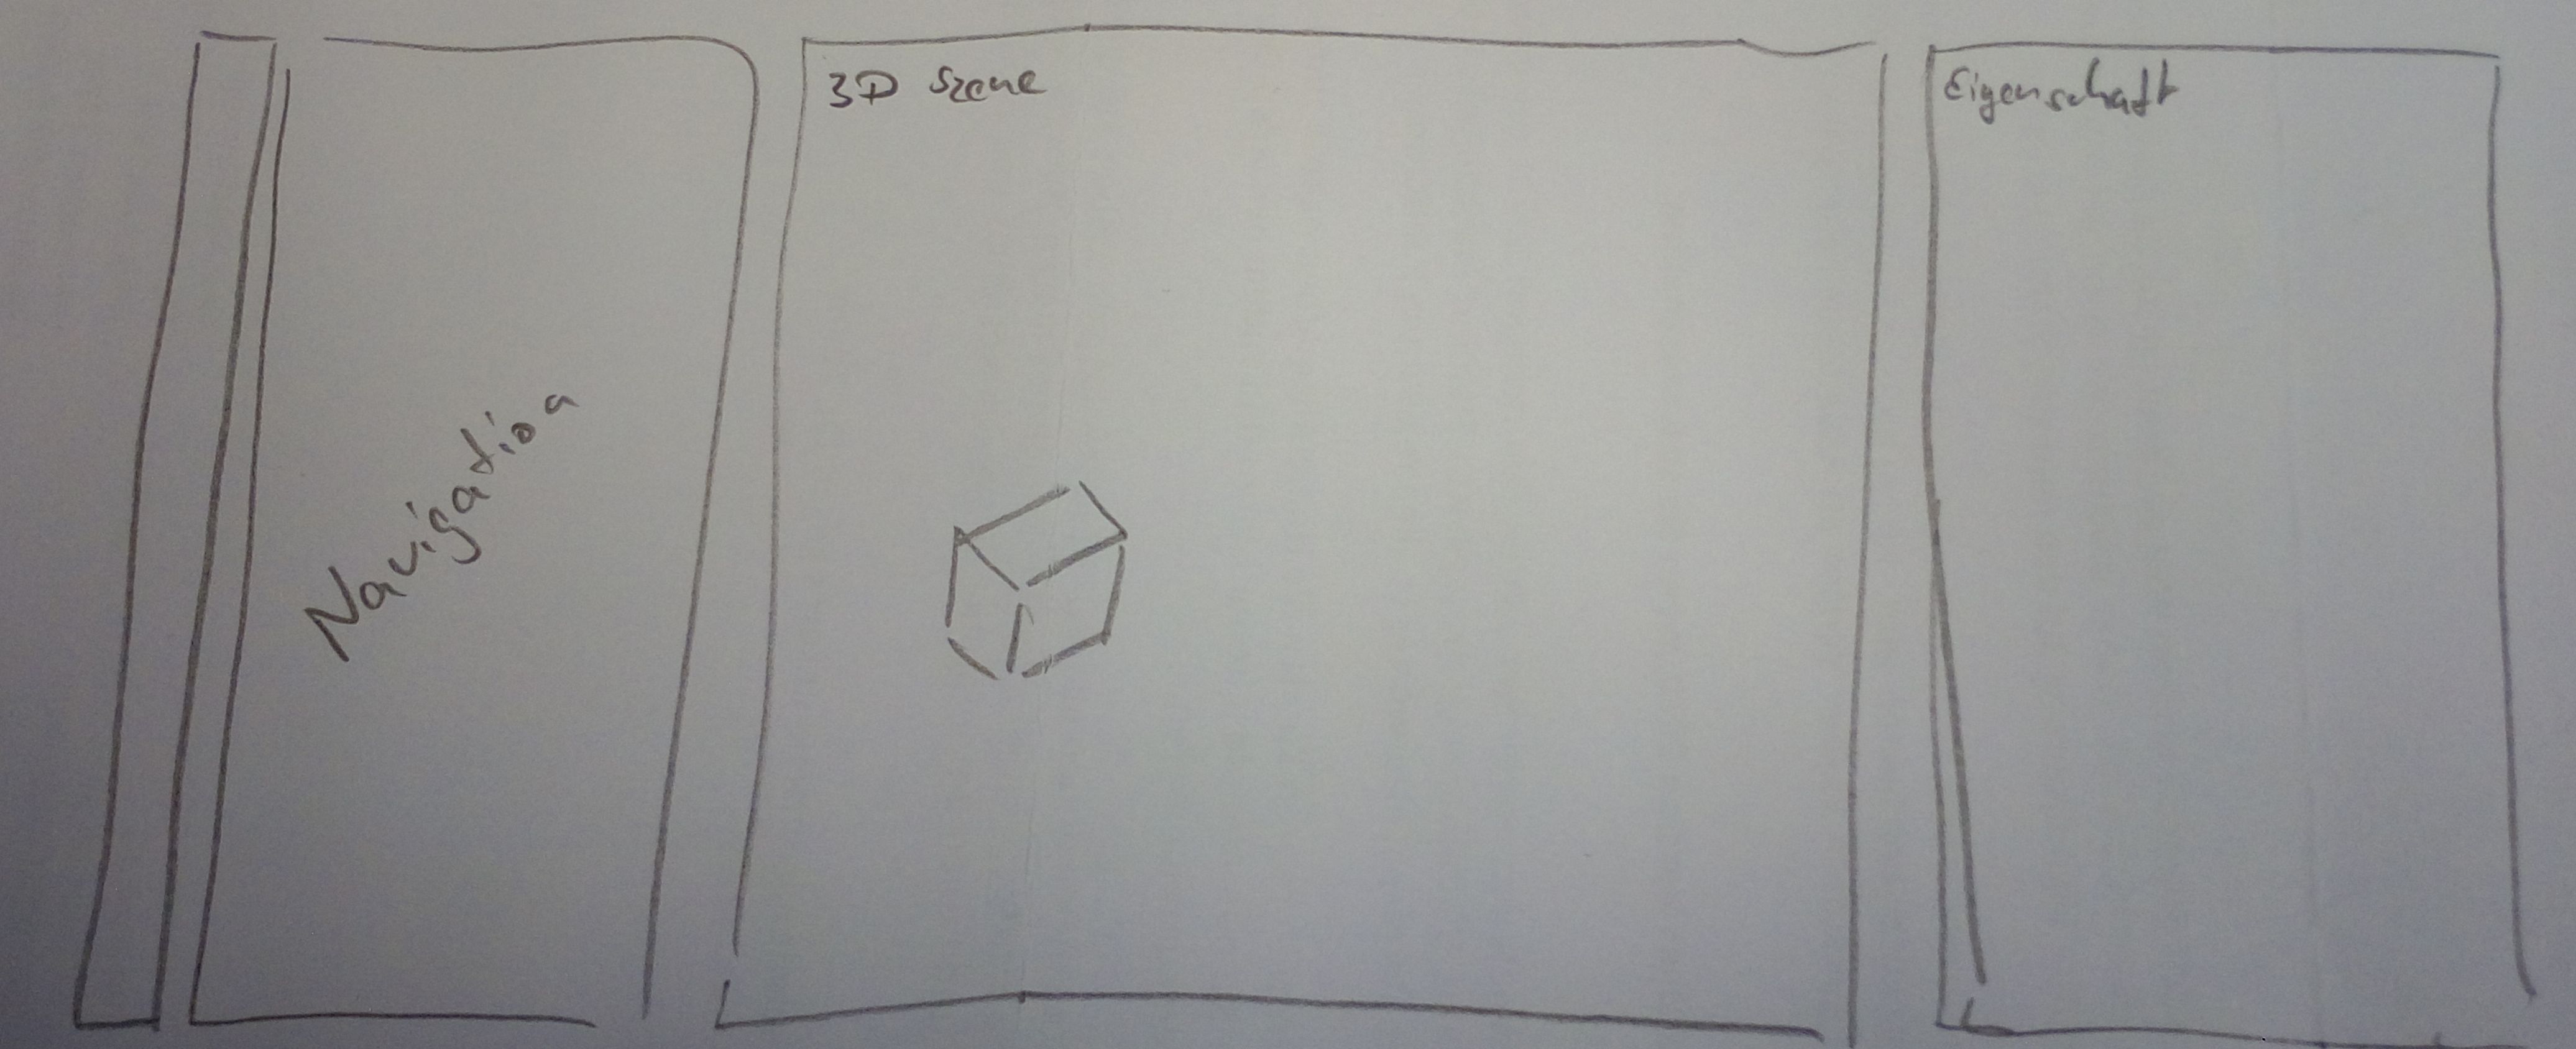 Navigation
3D Szene
Eigenschaft